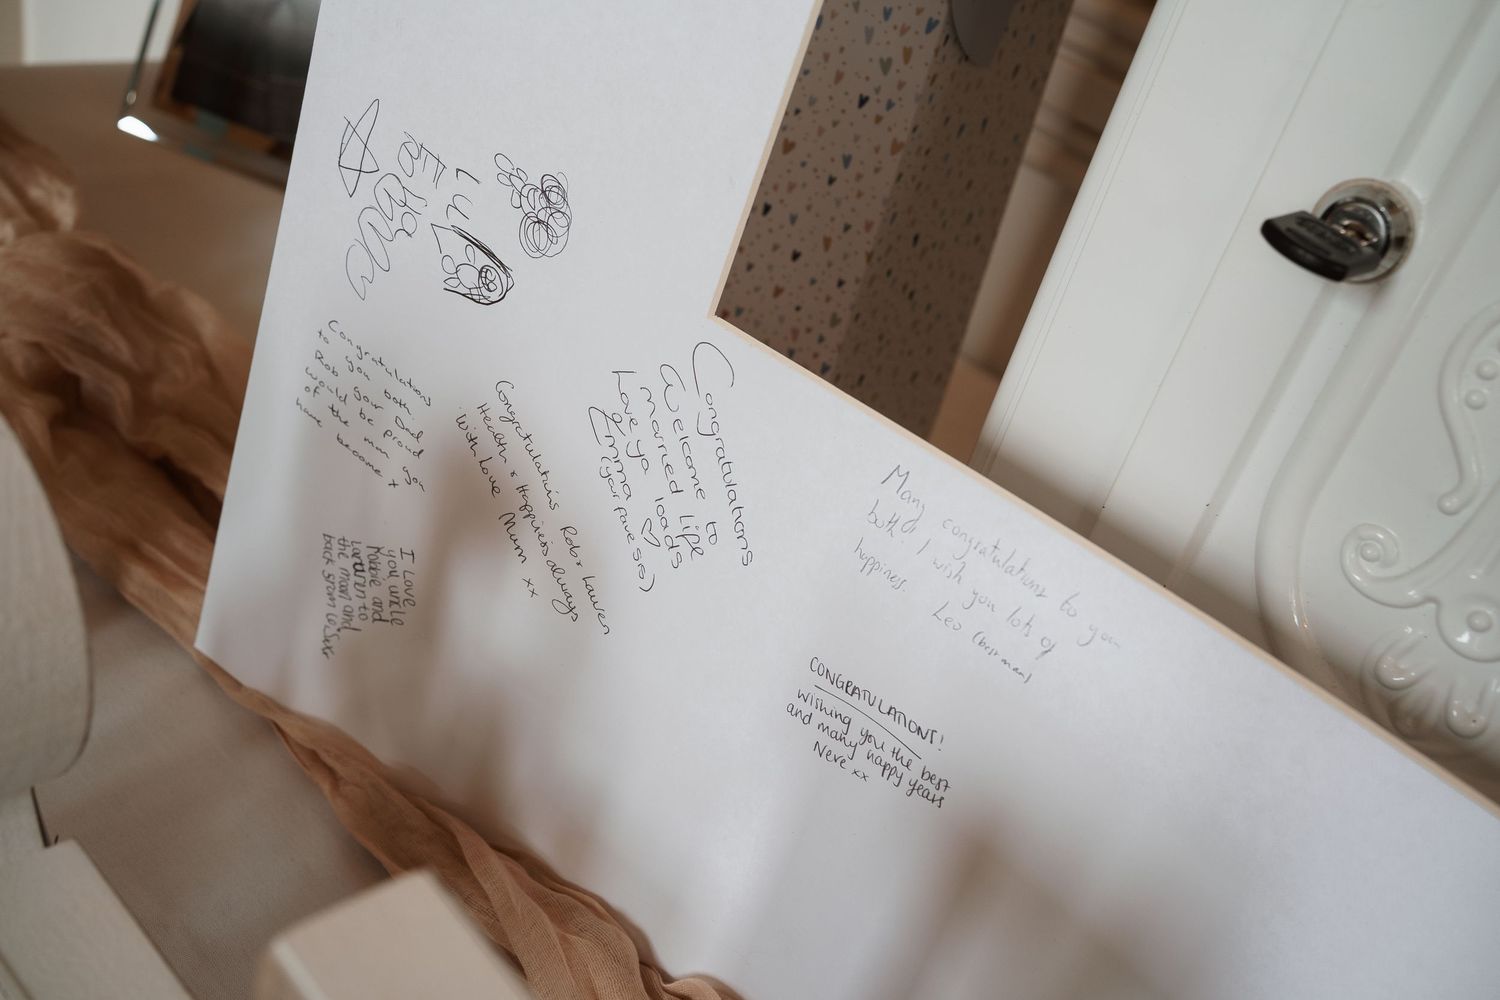 Congratulations
to you both.
Rob your Dad
would be proud
of the man you
have become x
I Love
you uncle
Robbie and
Lauren to
the moon and
back from
Congratulations Rob & Lauren
Health & Happiness always
With love Mum xx
Congratulations
Welcome to
married life
Love ya loads
Emma ♡
(your fave sis)
Many congratulations to you
both! I wish you lots of
happiness. Leo (best man)
CONGRATULATIONS!
wishing you the best
and many happy years
Neve xx